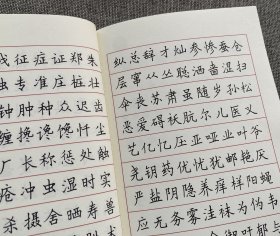 战征症证郑朱
虫专准庄桩壮
钟肿种众迟齿
缠搀谗馋忏尘
厂长称惩处触
疮冲虫湿时实
杀摄舍晒寿兽
纵总辞才灿参惨蚕仓
层窜从丛聪洒啬湿扫
伞丧苏肃虽随岁孙松
恶爱碍袄肮尔儿医义
艺亿忆压亚哑业叶爷
尧钥药优忧犹邮艳厌
严盐阴隐养痒样阳蝇
应无务雾洼袜为伪韦